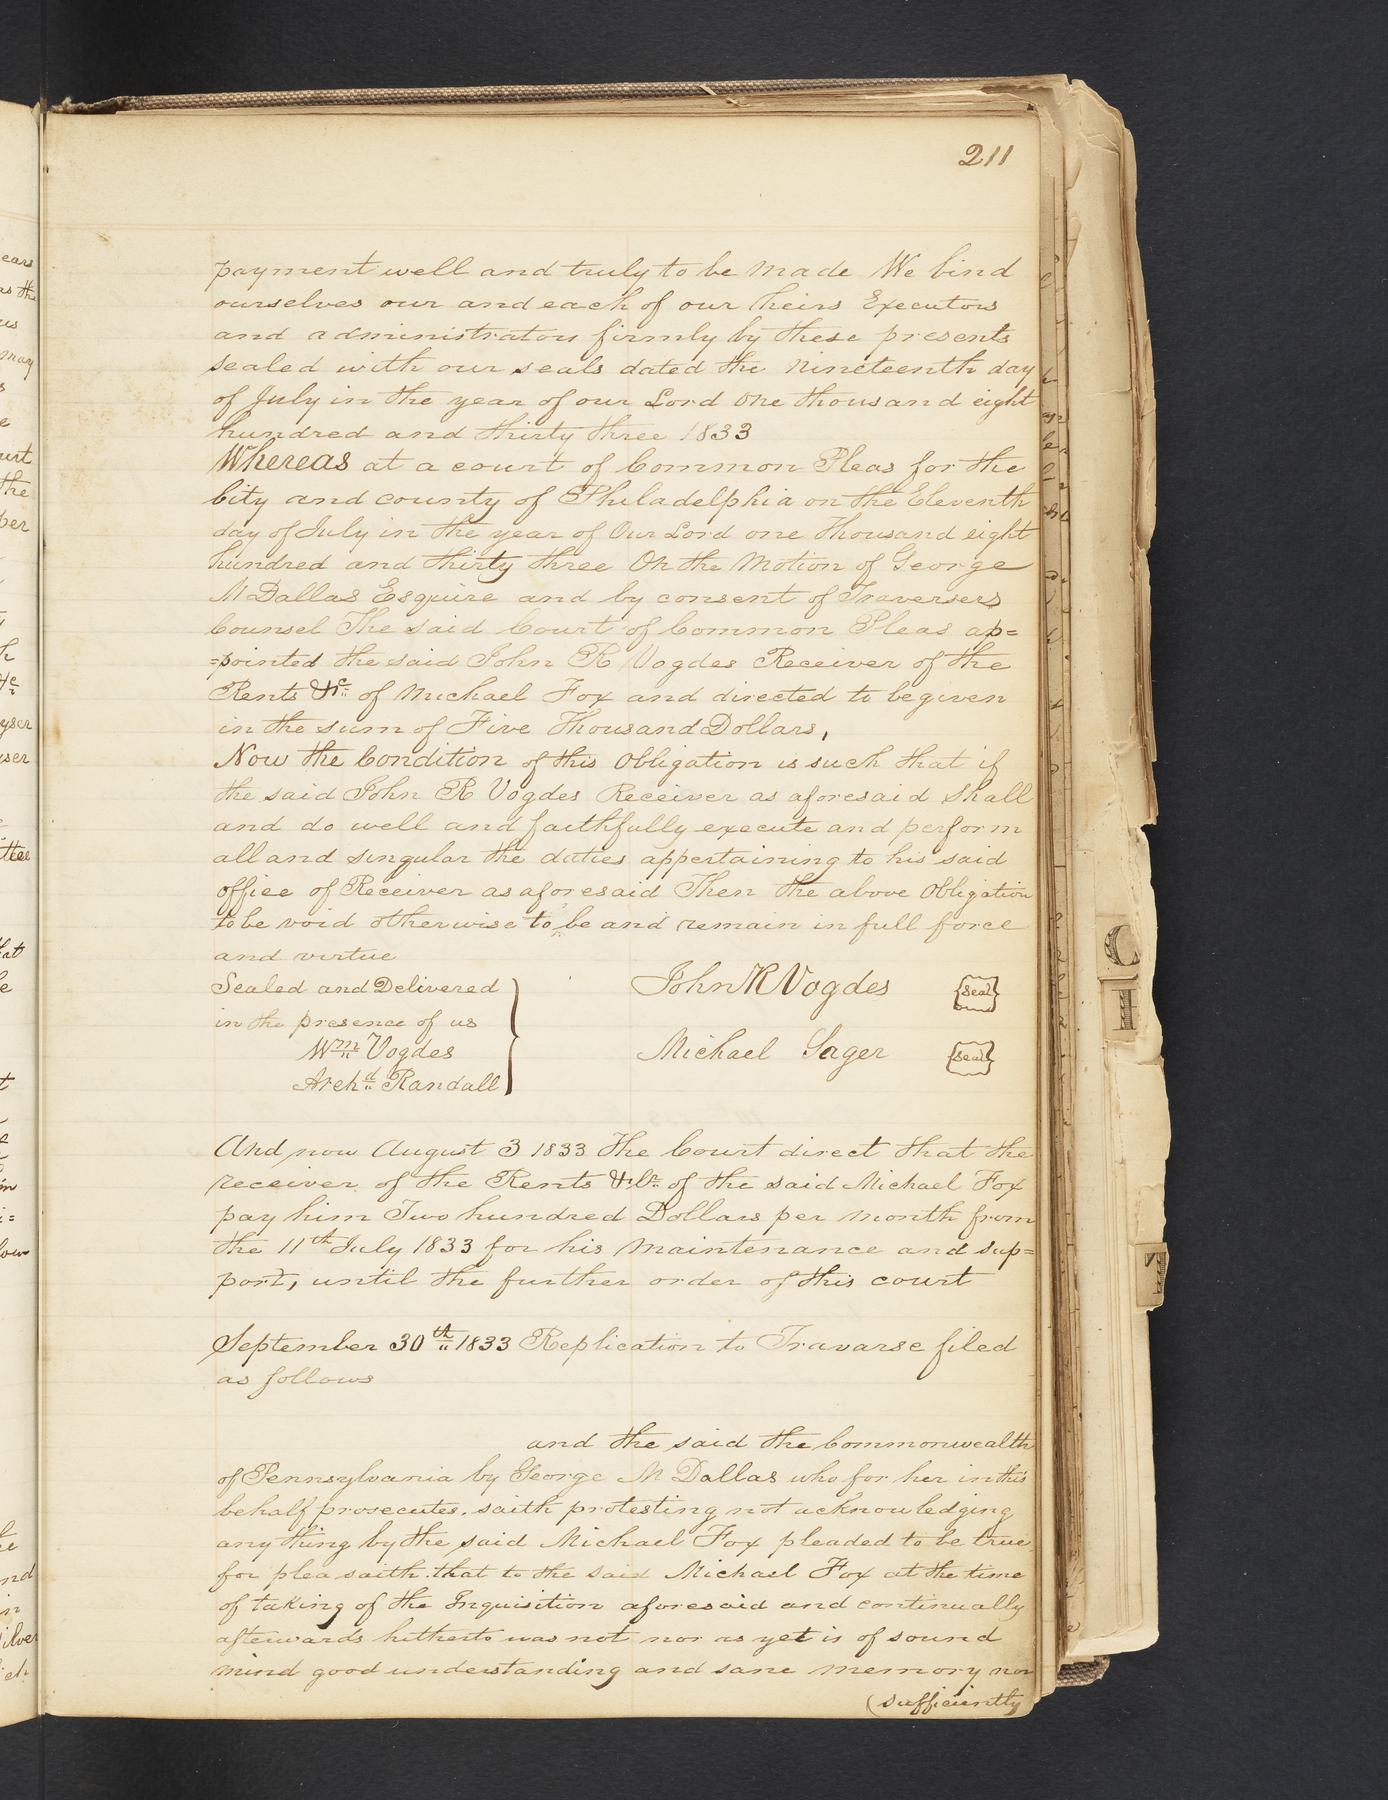 211
payment well and truly to be made We bind
ourselves our and each of our heirs Executors
and administrators firmly by these presents
sealed with our seals dated the Nineteenth day
of July in the year of our Lord One thousand eight
hundred and thirty three 1833
Whereas at a court of Common Pleas for the
City and county of Philadelphia on the Eleventh
day of July in the year of Our Lord one Thousand eight
hundred and thirty three On the Motion of George
M Dallas Esquire and by consent of Traversers
Counsel The said Court of Common Pleas ap=
=pointed the said John R Vogdes Receiver of the
Rents &c of Michael Fox and directed to be given
in the sum of Five Thousand Dollars,
Now the Condition of this Obligation is such that if
the said John R Vogdes Receiver as aforesaid shall
and do well and faithfully execute and perform
all and singular the duties appertaining to his said
office of Receiver as aforesaid Then the above Obligation
to be void otherwise to be and remain in full force
and virtue
Sealed and Delivered
in the presence of us
Wm Vogdes
Archd Randall
John R Vogdes seal
Michael Sager seal
And now August 3 1833 The Court direct that the
receiver of the Rents &c of the said Michael Fox
pay him Two hundred Dollars per month from
the 11th July 1833 for his maintenance and sup=
port, until the further order of this court
September 30th 1833 Replication to Travarse filed
as follows
and the said the Commonwealth
of Pennsylvania by George M Dallas who for her in this
behalf prosecutes, saith protesting not acknowledging
any thing by the said Michael Fox pleaded to be true
for plea saith that to the said Michael Fox at the time
of taking of the Inquisition aforesaid and continually
afterwards hitherto was not nor as yet is of sound
mind good understanding and sane memory nor
(sufficiently